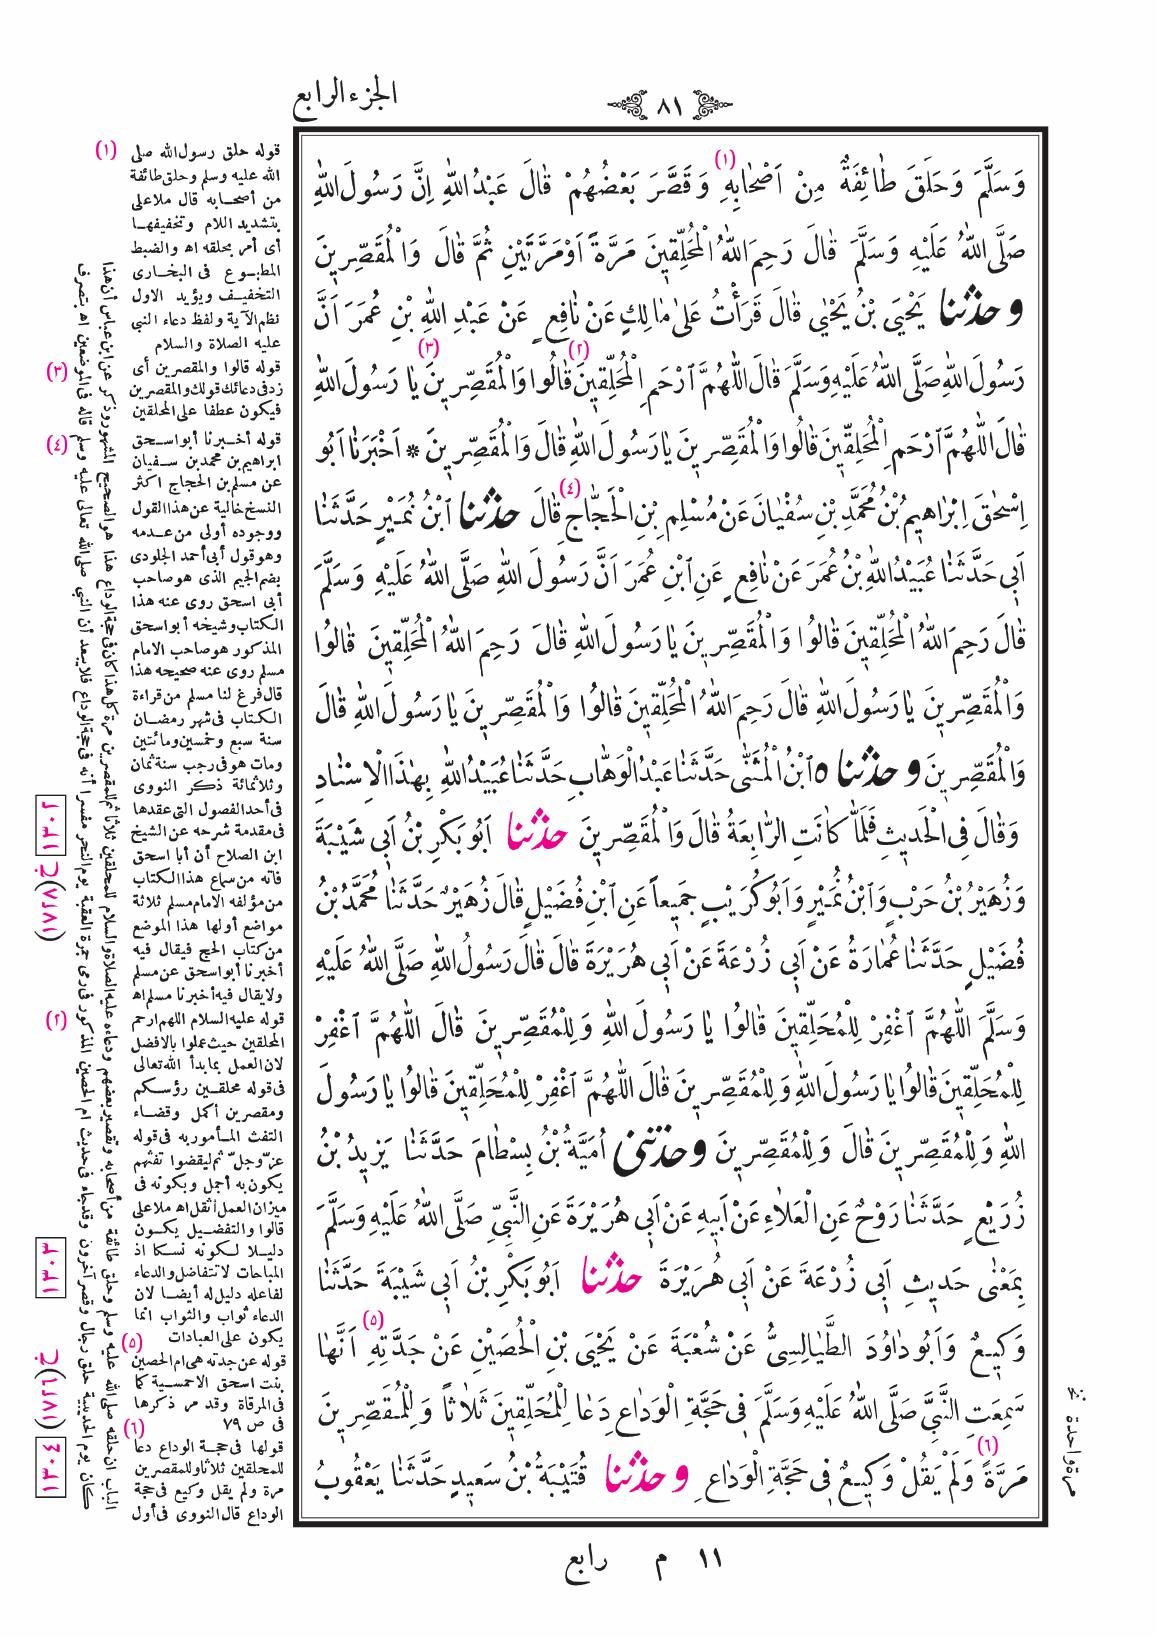 ٨١
الجزء الرابع
وَسَلَّمَ وَحَلَقَ طَائِفَةٌ مِنْ اَصْحَابِهِ (١) وَقَصَّرَ بَعْضُهُمْ قَالَ عَبْدُ اللّٰهِ اِنَّ رَسُولَ اللّٰهِ
صَلَّى اللّٰهُ عَلَيْهِ وَسَلَّمَ قَالَ رَحِمَ اللّٰهُ الْمُحَلِّقِينَ مَرَّةً اَوْ مَرَّتَيْنِ ثُمَّ قَالَ وَالْمُقَصِّرِينَ
وحدثنا يَحْيَى بْنُ يَحْيٰى قَالَ قَرَأْتُ عَلٰى مَالِكٍ عَنْ نَافِعٍ عَنْ عَبْدِ اللّٰهِ بْنِ عُمَرَ اَنَّ
رَسُولَ اللّٰهِ صَلَّى اللّٰهُ عَلَيْهِ وَسَلَّمَ قَالَ اللّٰهُمَّ ارْحَمِ الْمُحَلِّقِينَ (٢) قَالُوا وَالْمُقَصِّرِينَ (٣) يَا رَسُولَ اللّٰهِ
قَالَ اللّٰهُمَّ ارْحَمِ الْمُحَلِّقِينَ قَالُوا وَالْمُقَصِّرِينَ يَا رَسُولَ اللّٰهِ قَالَ وَالْمُقَصِّرِينَ * اَخْبَرَنَا اَبُو
اِسْحٰقَ اِبْرَاهِيمُ بْنُ مُحَمَّدِ بْنِ سُفْيَانَ عَنْ مُسْلِمِ بْنِ الْحَجَّاجِ (٤) قَالَ حدثنا ابْنُ نُمَيْرٍ حَدَّثَنَا
اَبِي حَدَّثَنَا عُبَيْدُ اللّٰهِ بْنُ عُمَرَ عَنْ نَافِعٍ عَنِ ابْنِ عُمَرَ اَنَّ رَسُولَ اللّٰهِ صَلَّى اللّٰهُ عَلَيْهِ وَسَلَّمَ
قَالَ رَحِمَ اللّٰهُ الْمُحَلِّقِينَ قَالُوا وَالْمُقَصِّرِينَ يَا رَسُولَ اللّٰهِ قَالَ رَحِمَ اللّٰهُ الْمُحَلِّقِينَ قَالُوا
وَالْمُقَصِّرِينَ يَا رَسُولَ اللّٰهِ قَالَ رَحِمَ اللّٰهُ الْمُحَلِّقِينَ قَالُوا وَالْمُقَصِّرِينَ يَا رَسُولَ اللّٰهِ قَالَ
وَالْمُقَصِّرِينَ وحدثنا ٥ ابْنُ الْمُثَنّٰى حَدَّثَنَا عَبْدُ الْوَهَّابِ حَدَّثَنَا عُبَيْدُ اللّٰهِ بِهٰذَا الْاِسْنَادِ
وَقَالَ فِي الْحَدِيثِ فَلَمَّا كَانَتِ الرَّابِعَةُ قَالَ وَالْمُقَصِّرِينَ حدثنا اَبُو بَكْرِ بْنُ اَبِي شَيْبَةَ
وَزُهَيْرُ بْنُ حَرْبٍ وَابْنُ نُمَيْرٍ وَاَبُو كُرَيْبٍ جَمِيعاً عَنِ ابْنِ فُضَيْلٍ قَالَ زُهَيْرٌ حَدَّثَنَا مُحَمَّدُ بْنُ
فُضَيْلٍ حَدَّثَنَا عُمَارَةُ عَنْ اَبِي زُرْعَةَ عَنْ اَبِي هُرَيْرَةَ قَالَ قَالَ رَسُولُ اللّٰهِ صَلَّى اللّٰهُ عَلَيْهِ
وَسَلَّمَ اللّٰهُمَّ اغْفِرْ لِلْمُحَلِّقِينَ قَالُوا يَا رَسُولَ اللّٰهِ وَلِلْمُقَصِّرِينَ قَالَ اللّٰهُمَّ اغْفِرْ
لِلْمُحَلِّقِينَ قَالُوا يَا رَسُولَ اللّٰهِ وَلِلْمُقَصِّرِينَ قَالَ اللّٰهُمَّ اغْفِرْ لِلْمُحَلِّقِينَ قَالُوا يَا رَسُولَ
اللّٰهِ وَلِلْمُقَصِّرِينَ قَالَ وَلِلْمُقَصِّرِينَ وحدثنى اُمَيَّةُ بْنُ بِسْطَامَ حَدَّثَنَا يَزِيدُ بْنُ
زُرَيْعٍ حَدَّثَنَا رَوْحٌ عَنِ الْعَلَاءِ عَنْ اَبِيهِ عَنْ اَبِي هُرَيْرَةَ عَنِ النَّبِيِّ صَلَّى اللّٰهُ عَلَيْهِ وَسَلَّمَ
بِمَعْنٰى حَدِيثِ اَبِي زُرْعَةَ عَنْ اَبِي هُرَيْرَةَ حدثنا اَبُو بَكْرِ بْنُ اَبِي شَيْبَةَ حَدَّثَنَا
وَكِيعٌ وَاَبُو دَاوُدَ الطَّيَالِسِيُّ عَنْ شُعْبَةَ عَنْ يَحْيَى بْنِ الْحُصَيْنِ عَنْ جَدَّتِهِ (٥) اَنَّهَا
سَمِعَتِ النَّبِيَّ صَلَّى اللّٰهُ عَلَيْهِ وَسَلَّمَ فِي حَجَّةِ الْوَدَاعِ دَعَا لِلْمُحَلِّقِينَ ثَلَاثاً وَلِلْمُقَصِّرِينَ
مَرَّةً (٦) وَلَمْ يَقُلْ وَكِيعٌ فِي حَجَّةِ الْوَدَاعِ وحدثنا قُتَيْبَةُ بْنُ سَعِيدٍ حَدَّثَنَا يَعْقُوبُ
مرة واحدة نخ
(١) قوله حلق رسول الله صلى
الله عليه وسلم وحلق طائفة
من أصحابه قال ملاعلى
بتشديد اللام وتخفيفها
أى أمر بحلقه اه والضبط
المطبوع فى البخارى
التخفيف ويؤيد الاول
نظم الآية ولفظ دعاء النبى
عليه الصلاة والسلام
(٣) قوله قالوا والمقصرين أى
زد فى دعائك قولك والمقصرين
فيكون عطفا على المحلقين
(٤) قوله أخبرنا أبو اسحق
ابراهيم بن محمد بن سفيان
عن مسلم بن الحجاج اكثر
النسخ خالية عن هذا القول
ووجوده أولى من عدمه
وهو قول أبى أحمد الجلودى
بضم الجيم الذى هو صاحب
أبى اسحق روى عنه هذا
الكتاب وشيخه أبو اسحق
المذكور هو صاحب الامام
مسلم روى عنه صحيحه هذا
قال فرغ لنا مسلم من قراءة
الكتاب فى شهر رمضان
سنة سبع وخمسين ومائتين
ومات هو فى رجب سنة ثمان
وثلاثمائة ذكر النووى
فى أحد الفصول التى عقدها
فى مقدمة شرحه عن الشيخ
ابن الصلاح أن أبا اسحق
فاته من سماع هذا الكتاب
من مؤلفه الامام مسلم ثلاثة
مواضع أولها هذا الموضع
من كتاب الحج فيقال فيه
أخبرنا أبو اسحق عن مسلم
ولا يقال فيه أخبرنا مسلم اه
(٢) قوله عليه السلام اللهم ارحم
المحلقين حيث عملوا بالافضل
لان العمل بما بدأ الله تعالى
فى قوله محلقين رؤسكم
ومقصرين أكمل وقضاء
التفث المأمور به فى قوله
عز وجل ثم ليقضوا تفثهم
يكون به أجمل وبكونه فى
ميزان العمل أثقل اه ملاعلى
قالوا والتفضيل يكون
دليلا لكونه نسكا اذ
المباحات لا تتفاضل والدعاء
لفاعله دليل له أيضا لان
الدعاء ثواب والثواب انما
يكون على العبادات
(٥) قوله عن جدته هى ام الحصين
بنت اسحق الاحمسية كما
فى المرقاة وقد مر ذكرها
فى ص ٧٩
(٦) قولها فى حجة الوداع دعا
للمحلقين ثلاثا وللمقصرين
مرة ولم يقل وكيع فى حجة
الوداع قال النووى فى أول
١٣٠٢
(١٧٢٧) ج
١٣٠٣
(١٧٢٦) ج
١٣٠٤
١١ م رابع